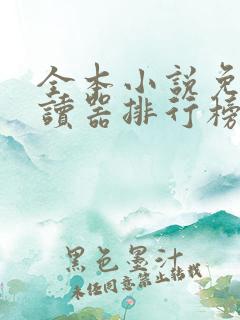 全本小說免
讀器排行榜
黑色墨汁
未經同意禁止轉載